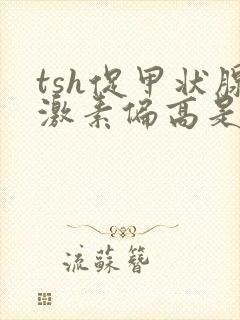 tsh促甲状腺
激素偏高是
流蘇簪